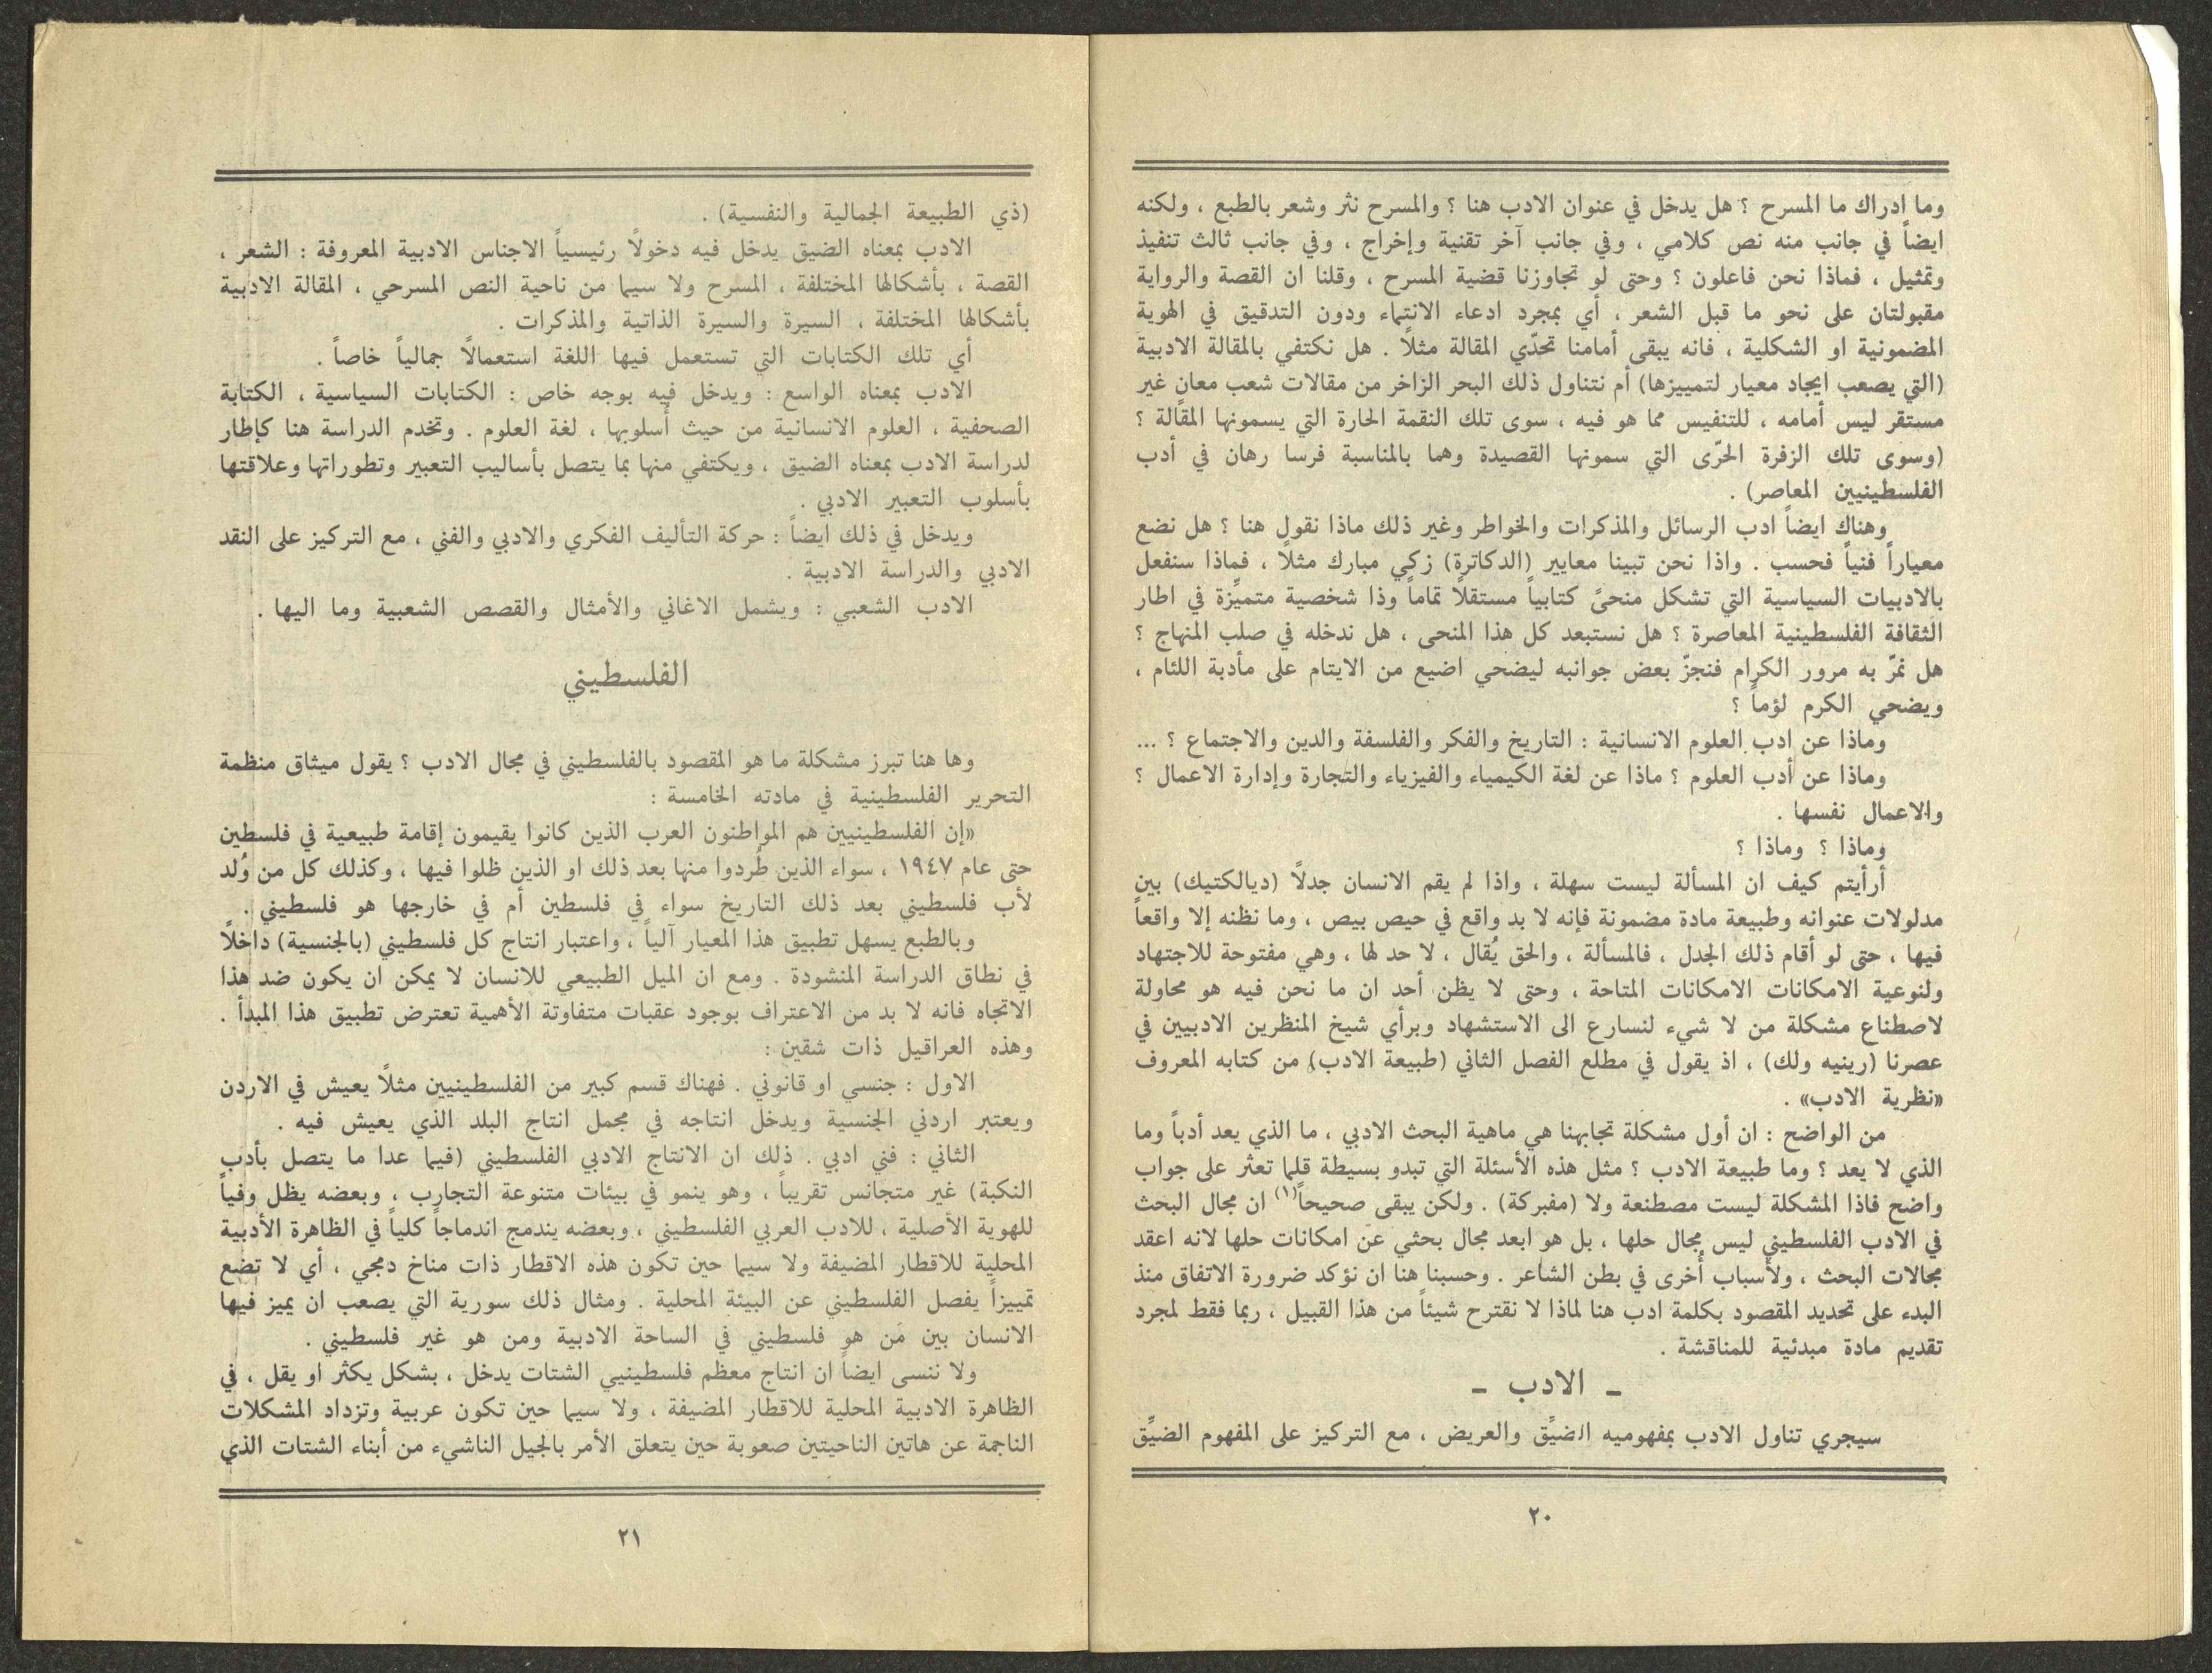 وما ادراك ما المسرح ؟ هل يدخل في عنوان الادب هنا ؟ والمسرح نثر وشعر بالطبع ، ولكنه
ايضاً في جانب منه نص كلامي ، وفي جانب آخر تقنية وإخراج ، وفي جانب ثالث تنفيذ
وتمثيل ، فماذا نحن فاعلون ؟ وحتى لو تجاوزنا قضية المسرح ، وقلنا ان القصة والرواية
مقبولتان على نحو ما قبل الشعر ، أي بمجرد ادعاء الانتماء ودون التدقيق في الهوية
المضمونية او الشكلية ، فانه يبقى أمامنا تحدّي المقالة مثلاً . هل نكتفي بالمقالة الادبية
(التي يصعب ايجاد معيار لتمييزها) أم نتناول ذلك البحر الزاخر من مقالات شعب معانٍ غير
مستقر ليس أمامه ، للتنفيس مما هو فيه ، سوى تلك النقمة الحارة التي يسمونها المقالة ؟
(وسوى تلك الزفرة الحرّى التي سمونها القصيدة وهما بالمناسبة فرسا رهان في أدب
الفلسطينيين المعاصر) .
وهناك ايضاً ادب الرسائل والمذكرات والخواطر وغير ذلك ماذا نقول هنا ؟ هل نضع
معياراً فنياً فحسب . واذا نحن تبينا معايير (الدكاترة) زكي مبارك مثلاً ، فماذا سنفعل
بالادبيات السياسية التي تشكل منحىً كتابياً مستقلاً تماماً وذا شخصية متميِّزة في اطار
الثقافة الفلسطينية المعاصرة ؟ هل نستبعد كل هذا المنحى ، هل ندخله في صلب المنهاج ؟
هل نمرّ به مرور الكرام فنجزّ بعض جوانبه ليضحي اضيع من الايتام على مأدبة اللئام ،
ويضحي الكرم لؤماً ؟
وماذا عن ادب العلوم الانسانية : التاريخ والفكر والفلسفة والدين والاجتماع ؟ ...
وماذا عن أدب العلوم ؟ ماذا عن لغة الكيمياء والفيزياء والتجارة وإدارة الاعمال ؟
والاعمال نفسها .
وماذا ؟ وماذا ؟
أرأيتم كيف ان المسألة ليست سهلة ، واذا لم يقم الانسان جدلاً (ديالكتيك) بين
مدلولات عنوانه وطبيعة مادة مضمونة فإنه لا بد واقع في حيص بيص ، وما نظنه إلا واقعاً
فيها ، حتى لو أقام ذلك الجدل ، فالمسألة ، والحق يُقال ، لا حد لها ، وهي مفتوحة للاجتهاد
ولنوعية الامكانات الامكانات المتاحة ، وحتى لا يظن أحد ان ما نحن فيه هو محاولة
لاصطناع مشكلة من لا شيء لنسارع الى الاستشهاد وبرأي شيخ المنظرين الادبيين في
عصرنا (رينيه ولك) ، اذ يقول في مطلع الفصل الثاني (طبيعة الادب) من كتابه المعروف
«نظرية الادب» .
من الواضح : ان أول مشكلة تجابهنا هي ماهية البحث الادبي ، ما الذي يعد أدباً وما
الذي لا يعد ؟ وما طبيعة الادب ؟ مثل هذه الأسئلة التي تبدو بسيطة قلما تعثر على جواب
واضح فاذا المشكلة ليست مصطنعة ولا (مفبركة) . ولكن يبقى صحيحاً(١) ان مجال البحث
في الادب الفلسطيني ليس مجال حلها ، بل هو ابعد مجال بحثي عن امكانات حلها لانه اعقد
مجالات البحث ، ولأسباب أُخرى في بطن الشاعر . وحسبنا هنا ان نؤكد ضرورة الاتفاق منذ
البدء على تحديد المقصود بكلمة ادب هنا لماذا لا نقترح شيئاً من هذا القبيل ، ربما فقط لمجرد
تقديم مادة مبدئية للمناقشة .
ـ الادب ـ
سيجري تناول الادب بمفهوميه الضيِّق والعريض ، مع التركيز على المفهوم الضيِّق
٢٠
(ذي الطبيعة الجمالية والنفسية) .
الادب بمعناه الضيق يدخل فيه دخولاً رئيسياً الاجناس الادبية المعروفة : الشعر ،
القصة ، بأشكالها المختلفة ، المسرح ولا سيما من ناحية النص المسرحي ، المقالة الادبية
بأشكالها المختلفة ، السيرة والسيرة الذاتية والمذكرات .
أي تلك الكتابات التي تستعمل فيها اللغة استعمالاً جمالياً خاصاً .
الادب بمعناه الواسع : ويدخل فيه بوجه خاص : الكتابات السياسية ، الكتابة
الصحفية ، العلوم الانسانية من حيث أُسلوبها ، لغة العلوم . وتخدم الدراسة هنا كإطار
لدراسة الادب بمعناه الضيق ، ويكتفي منها بما يتصل بأساليب التعبير وتطوراتها وعلاقتها
بأسلوب التعبير الادبي .
ويدخل في ذلك ايضاً : حركة التأليف الفكري والادبي والفني ، مع التركيز على النقد
الادبي والدراسة الادبية .
الادب الشعبي : ويشمل الاغاني والأمثال والقصص الشعبية وما اليها .
الفلسطيني
وها هنا تبرز مشكلة ما هو المقصود بالفلسطيني في مجال الادب ؟ يقول ميثاق منظمة
التحرير الفلسطينية في مادته الخامسة :
«إن الفلسطينيين هم المواطنون العرب الذين كانوا يقيمون إقامة طبيعية في فلسطين
حتى عام ١٩٤٧ ، سواء الذين طُردوا منها بعد ذلك او الذين ظلوا فيها ، وكذلك كل من وُلد
لأب فلسطيني بعد ذلك التاريخ سواء في فلسطين أم في خارجها هو فلسطيني .
وبالطبع يسهل تطبيق هذا المعيار آلياً ، واعتبار انتاج كل فلسطيني (بالجنسية) داخلاً
في نطاق الدراسة المنشودة . ومع ان الميل الطبيعي للانسان لا يمكن ان يكون ضد هذا
الاتجاه فانه لا بد من الاعتراف بوجود عقبات متفاوتة الأهمية تعترض تطبيق هذا المبدأ .
وهذه العراقيل ذات شقين :
الاول : جنسي او قانوني . فهناك قسم كبير من الفلسطينيين مثلاً يعيش في الاردن
ويعتبر اردني الجنسية ويدخل انتاجه في مجمل انتاج البلد الذي يعيش فيه .
الثاني : فني ادبي . ذلك ان الانتاج الادبي الفلسطيني (فيما عدا ما يتصل بأدب
النكبة) غير متجانس تقريباً ، وهو ينمو في بيئات متنوعة التجارب ، وبعضه يظل وفياً
للهوية الأصلية ، للادب العربي الفلسطيني ، وبعضه يندمج اندماجاً كلياً في الظاهرة الأدبية
المحلية للاقطار المضيفة ولا سيما حين تكون هذه الاقطار ذات مناخ دمجي ، أي لا تضع
تمييزاً يفصل الفلسطيني عن البيئة المحلية . ومثال ذلك سورية التي يصعب ان يميز فيها
الانسان بين مَن هو فلسطيني في الساحة الادبية ومن هو غير فلسطيني .
ولا ننسى ايضاً ان انتاج معظم فلسطينيي الشتات يدخل ، بشكل يكثر او يقل ، في
الظاهرة الادبية المحلية للاقطار المضيفة ، ولا سيما حين تكون عربية وتزداد المشكلات
الناجمة عن هاتين الناحيتين صعوبة حين يتعلق الأمر بالجيل الناشيء من أبناء الشتات الذي
٢١